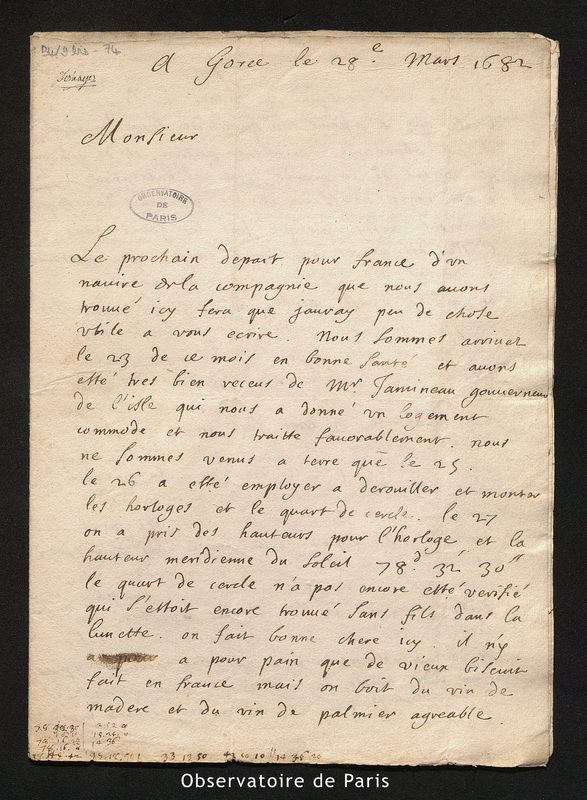 D4/9 bis - 74
Deshayes
A Goree le 28e. Mars 1682
Monsieur
OBSERVATOIRE
DE
PARIS
Le prochain depart pour france d'vn
nauire de la compagnie que nous auons
trouué icy fera que jauray peu de chose
vtile a vous ecrire. Nous sommes arriuez
le 23 de ce mois en bonne santé et auons
esté tres bien receus de Mr. Jamineau gouuerneur
de l'isle qui nous a donné vn logement
commode et nous traitte fauorablement. nous
ne sommes venus a terre que le 25.
le 26 a esté employer a derouiller et monter
les horloges et le quart de cercle. le 27
on a pris des hauteurs pour l'horloge et la
hauteur meridienne du soleil 78d 32' 30"
le quart de cercle n'a pas encore esté verifié
qui s'estoit encore trouué sans fils dans la
lunette. on fait bonne chere icy. il n'y
a pour pain que de vieux biscuit
fait en france mais on boit du vin de
madere et du vin de palmier agreable.
33 13 50
Observatoire de Paris